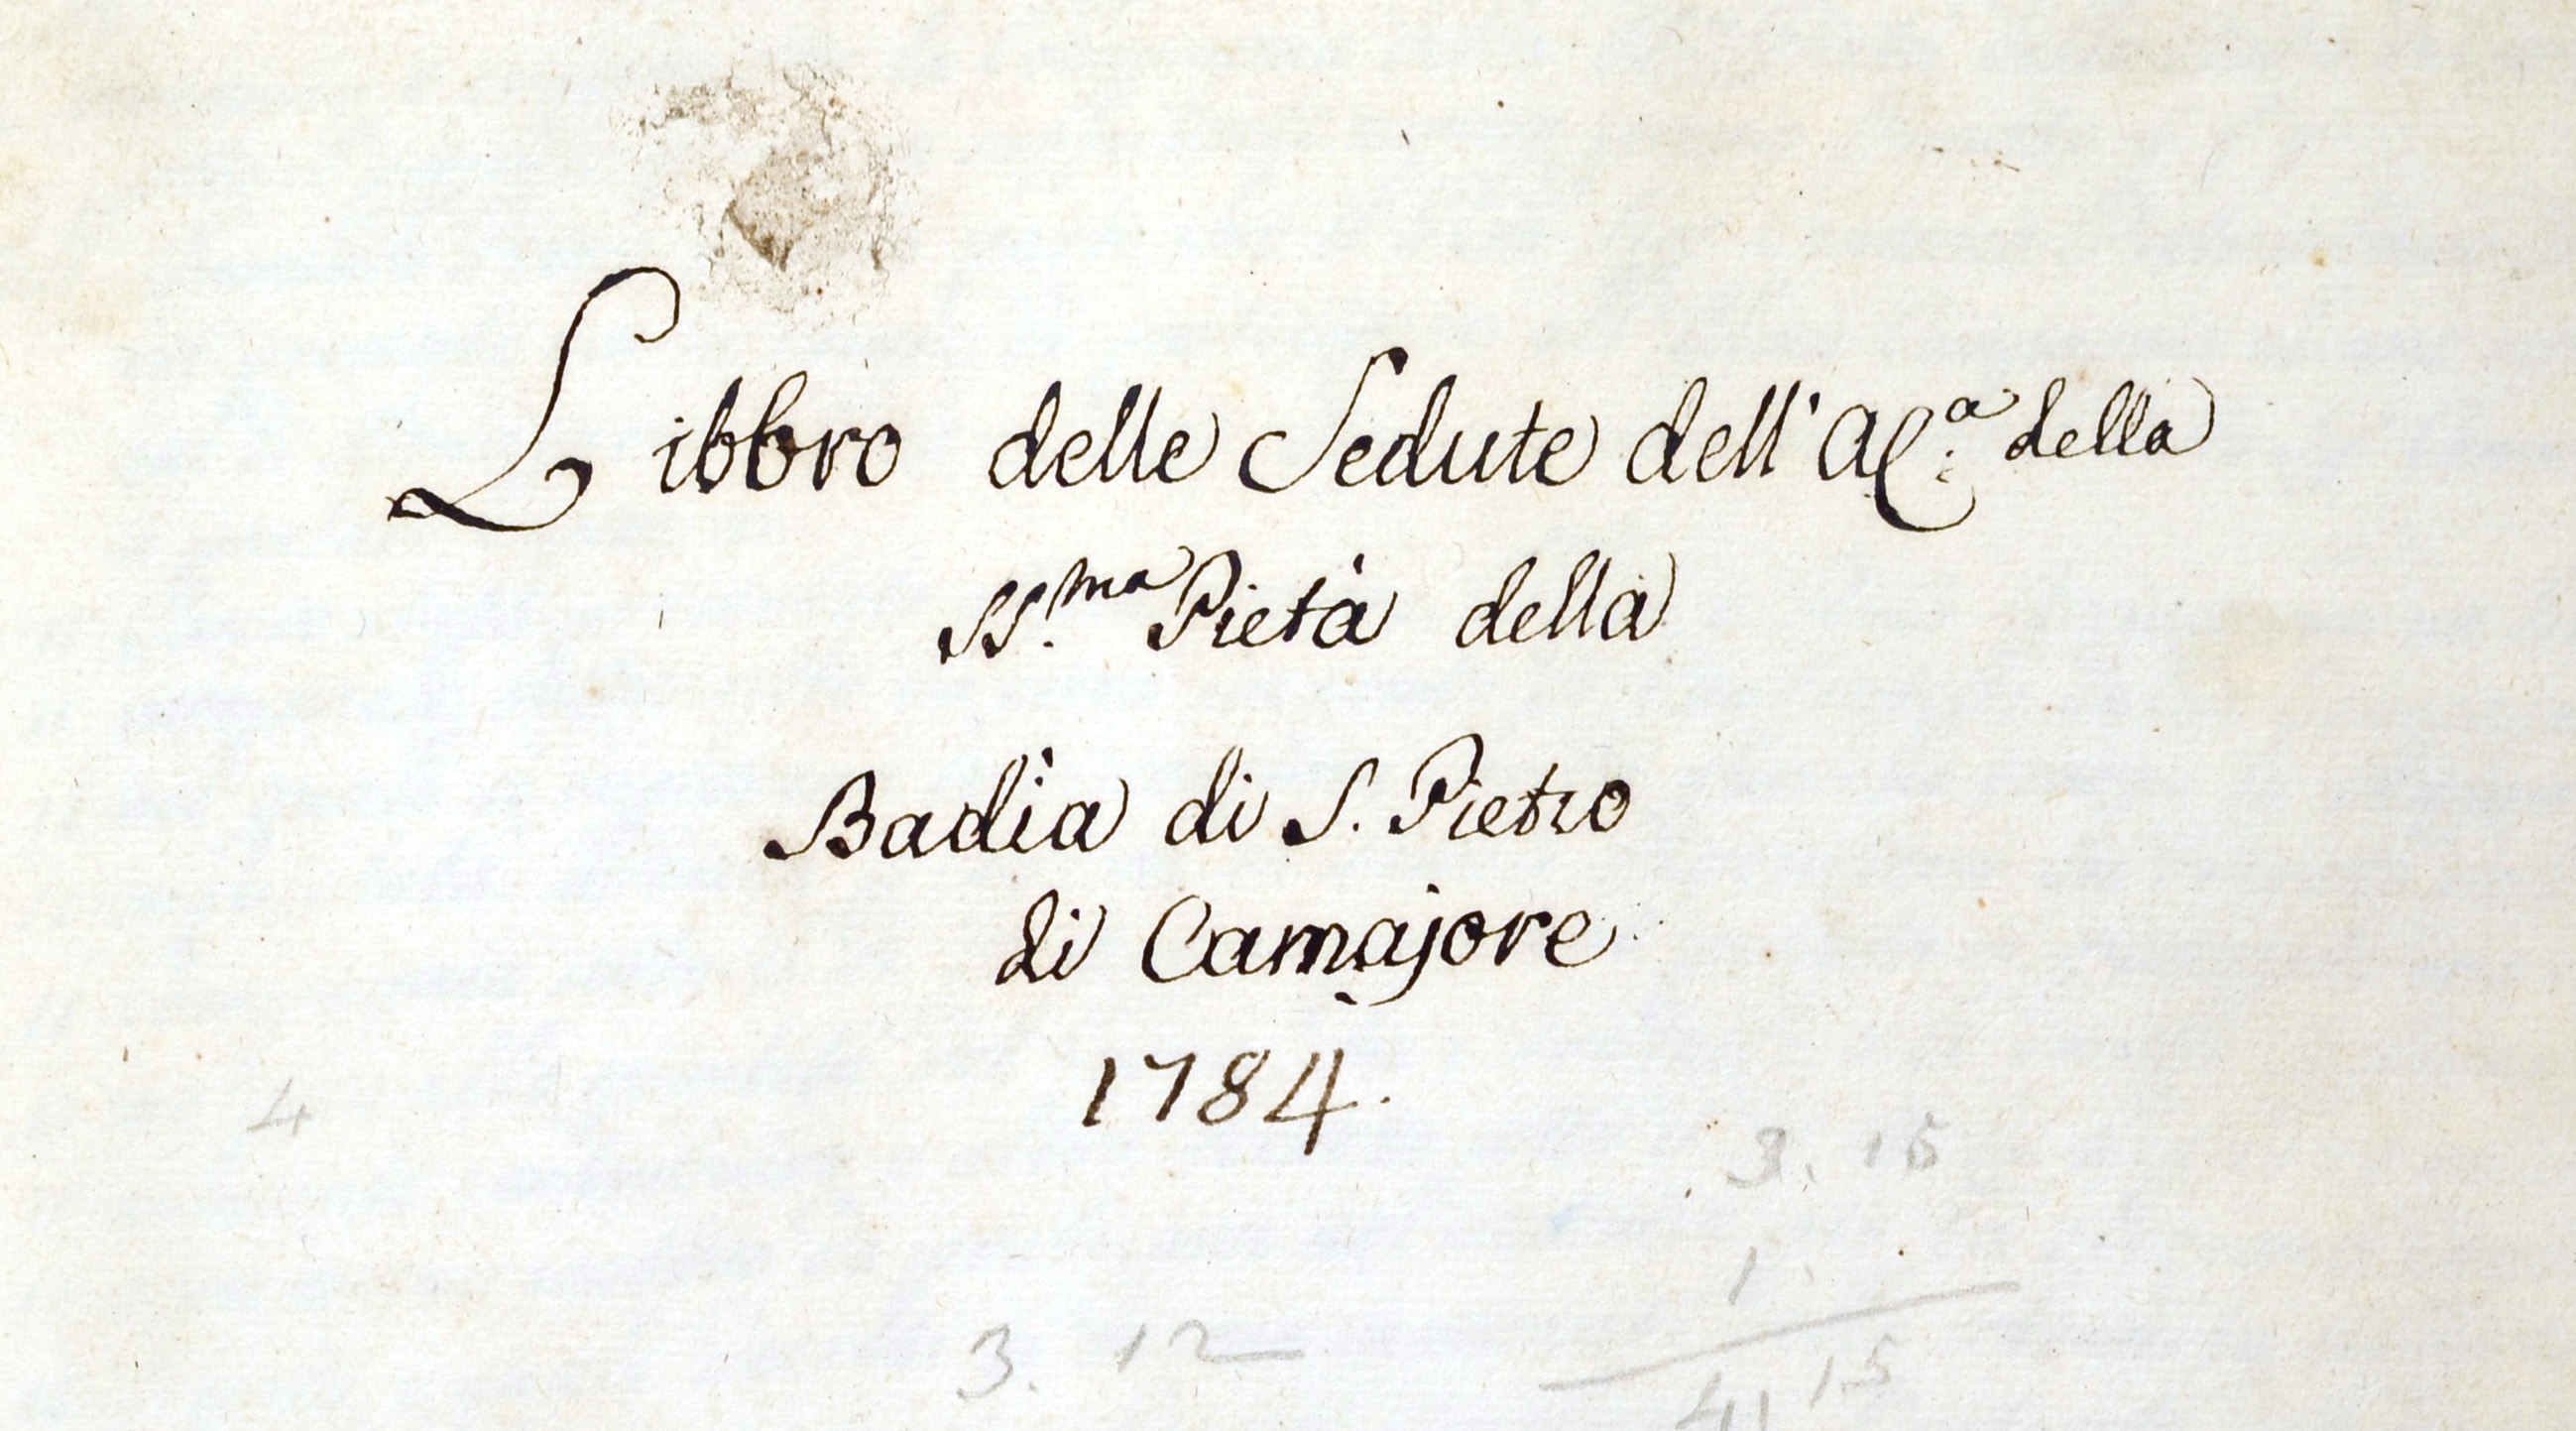 Libbro delle Sedute dell' Al.ª della
SS.ma Pietà della
Badìa di S. Pietro
di Camajore
1784.
4
3. 15
1.
3. 12
4. 15